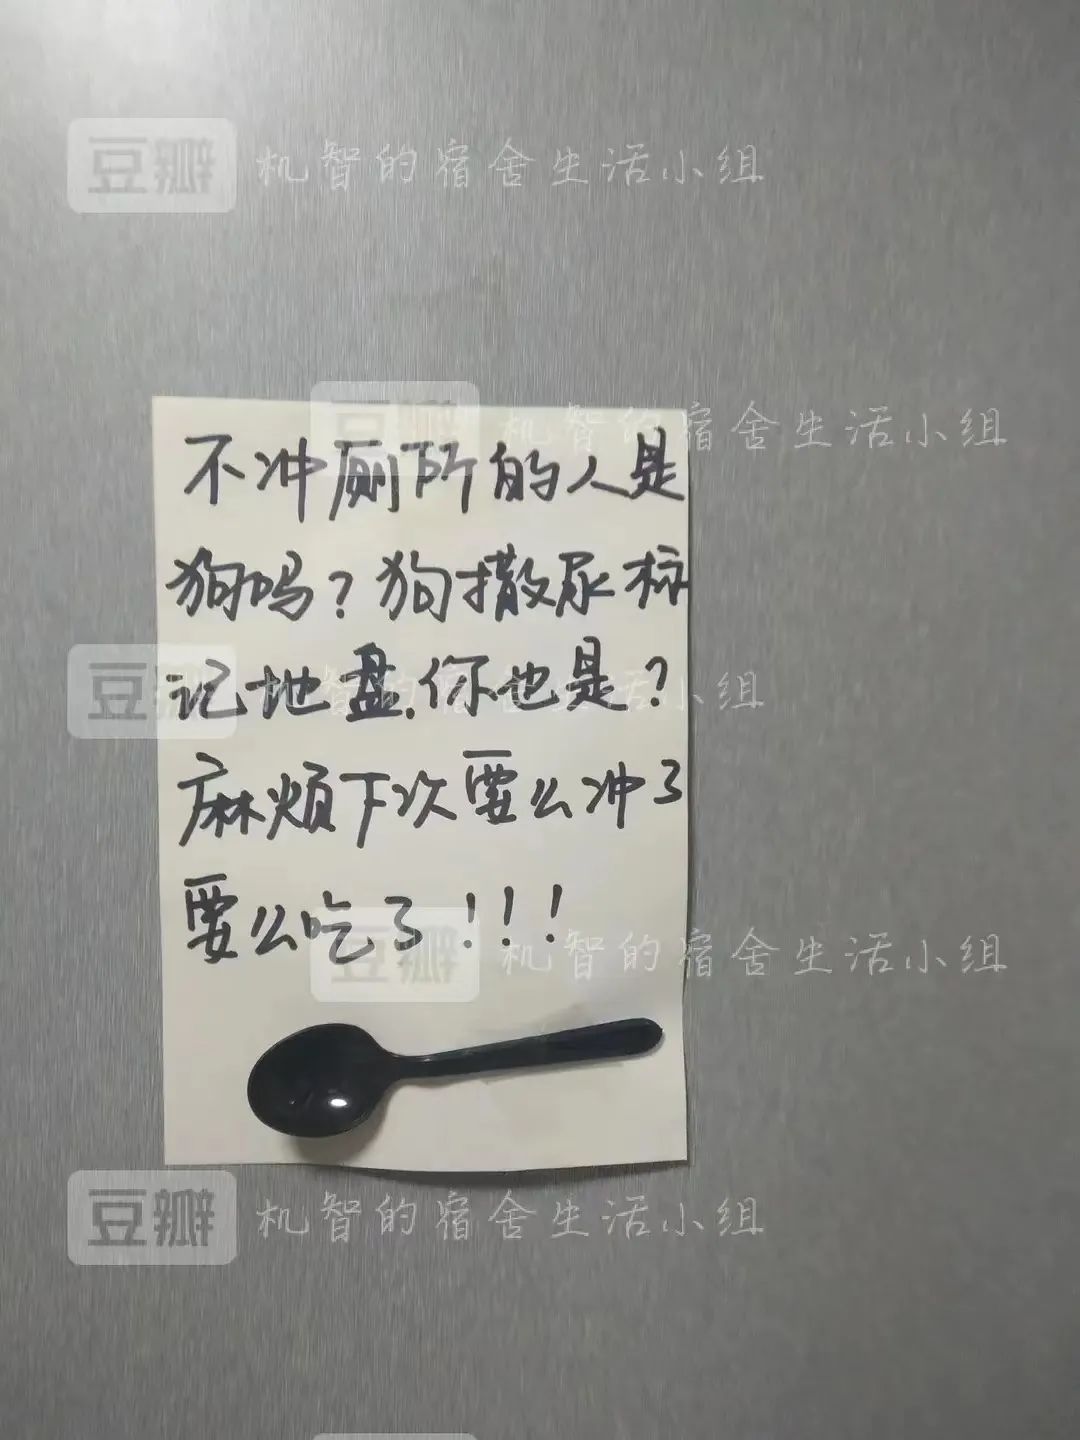 豆瓣 机智的宿舍生活小组
豆瓣 机智的宿舍生活小组
不冲厕所的人是
狗吗?狗撒尿标
记地盘.你也是?
豆瓣 机智的宿舍生活小组
麻烦下次要么冲了
要么吃了!!!
豆瓣 机智的宿舍生活小组
豆瓣 机智的宿舍生活小组